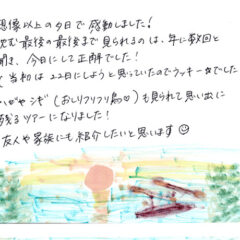 想像以上の夕日で感動しました！
沈む最後の最後まで見られるのは、年に数回と
聞き、今日にして正解でした！
当初は22日にしようと思っていたのでラッキーでした
シギ（おしりフリフリ鳥♡）も見られて思い出に
残るツアーになりました！
友人や家族にも紹介したいと思います☺